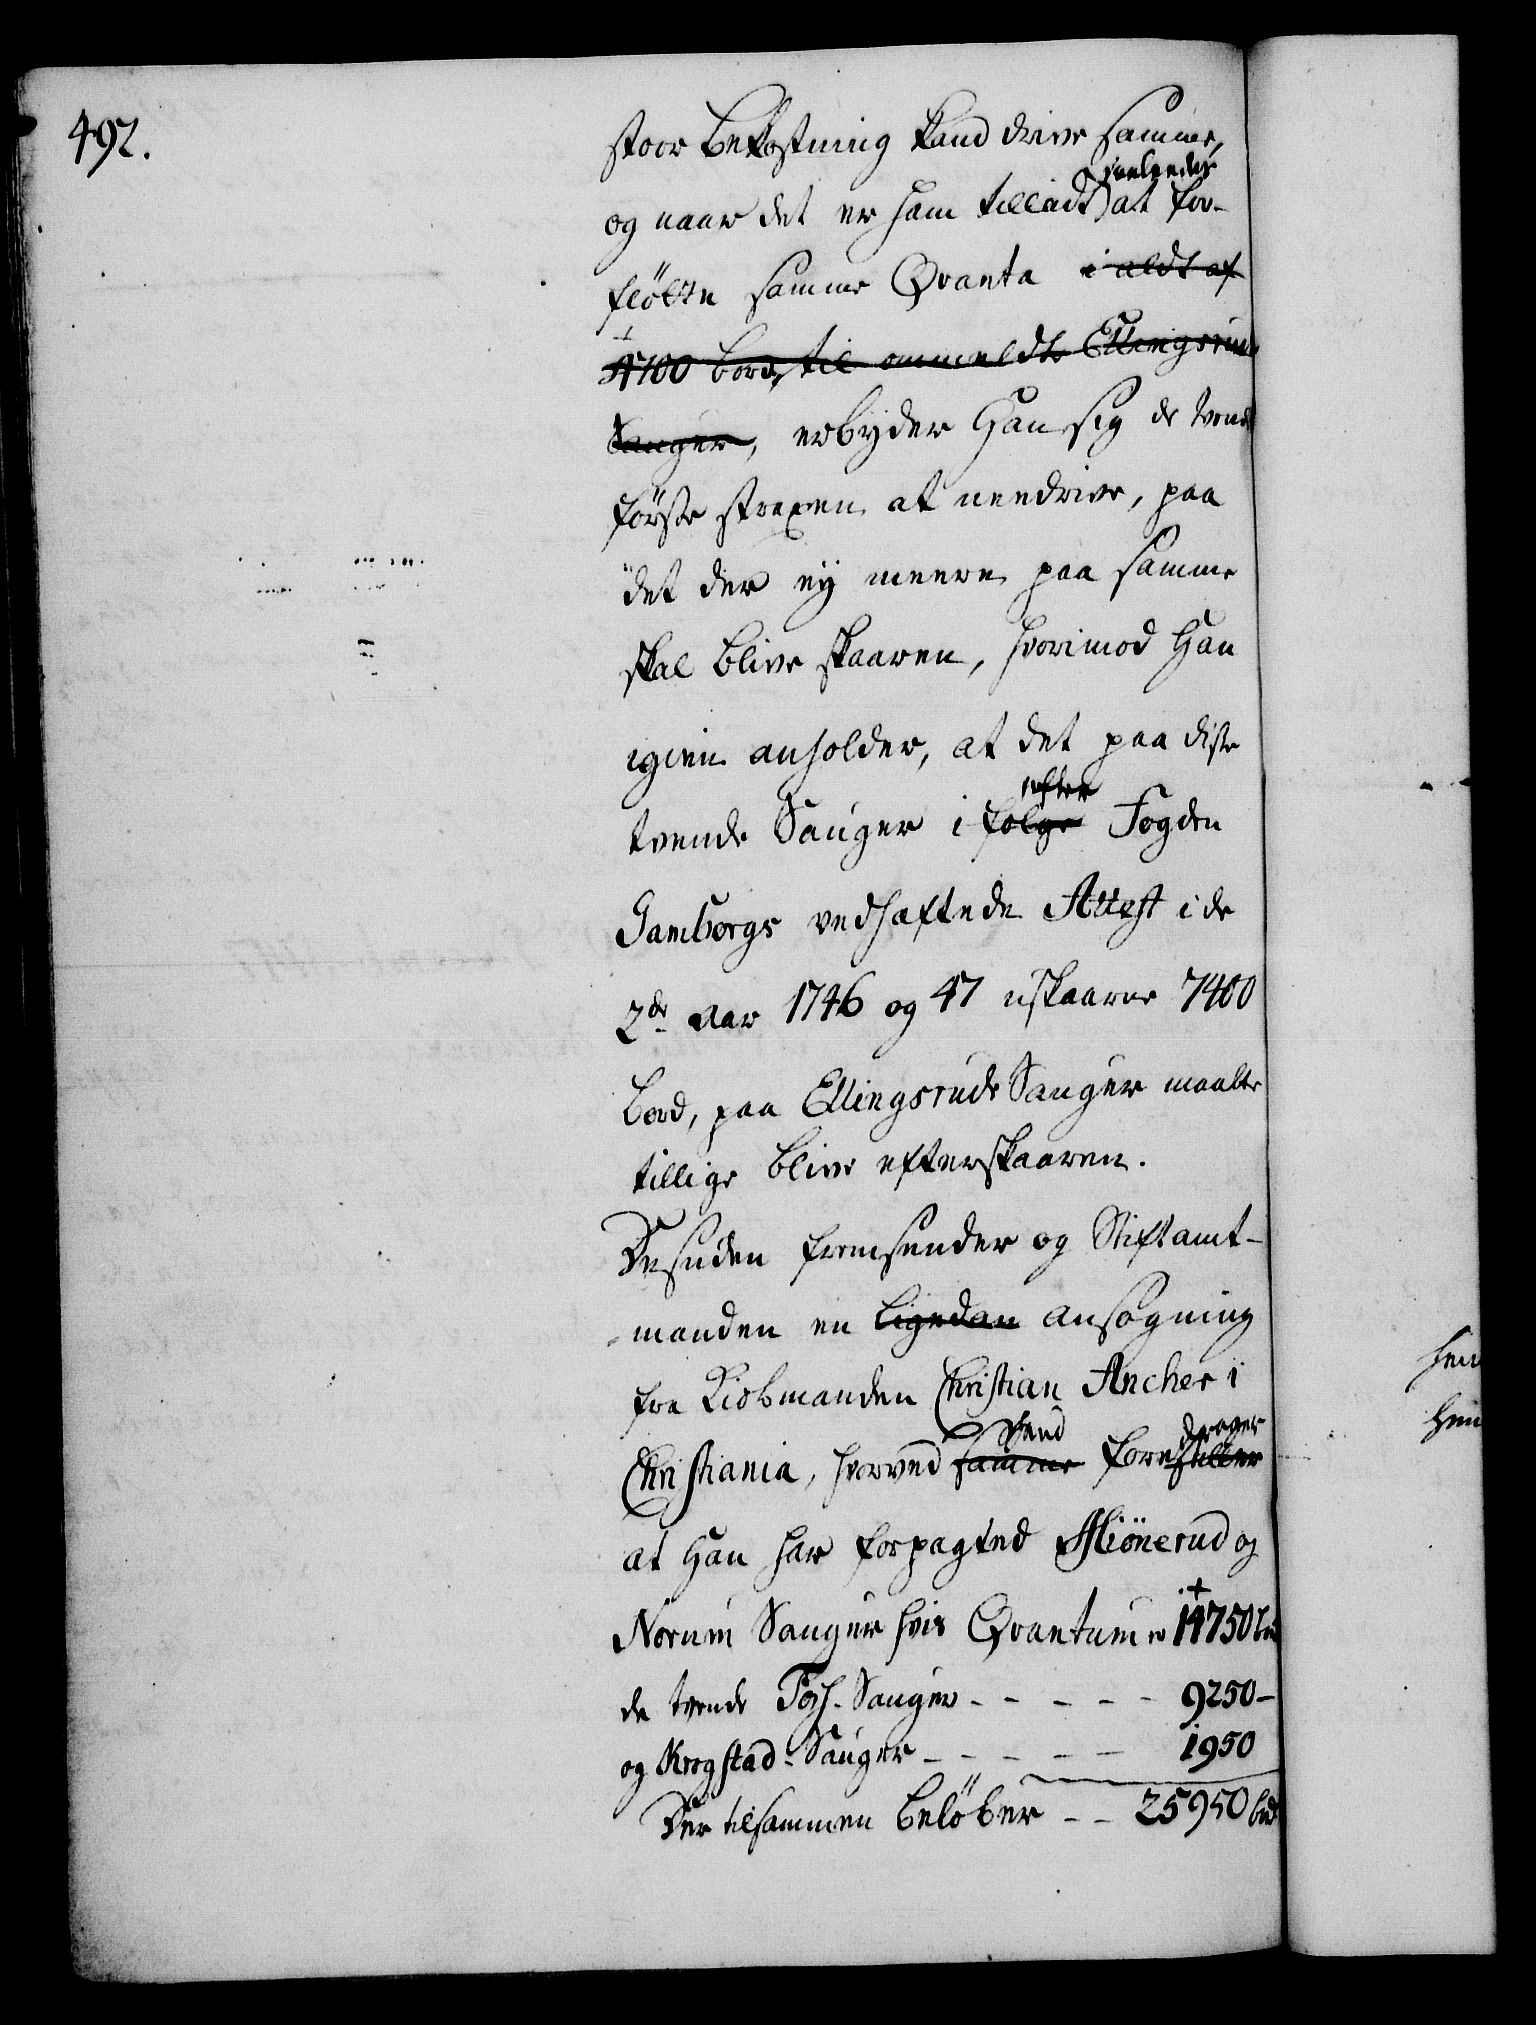 492.
stoor bekostning kand drive samme,
og naar det er ham tilladt at for-
fløtte samme Qvanta i aldt af
4700 bord, til ommeldte Ellingsruds
Sauger, erbyder Han sig de tvende
første straxen at needrive, paa
det der ey meere paa samme
skal blive skaaren, hvorimod Han
igien anholder, at det paa disse
efter
tvende Sauger i følge Fogden
Gamborgs vedhæftede Attest i de
2de Aar 1746 og 47 uskaarne 7400
bord, paa Ellingsruds Sauger maatte
tillige blive efterskaaren.
Desuden fremsender og Stiftamt-
manden en ligedan ansøgning
fra Kiøbmanden Christian Ancher i
drager
Christiania, hvorved samme forestiller
at Han har forpagted Miönerud og
Norum Sauger hvis Qvantum er 14750 brd
de tvende Fosh-Sauger - - - - - 9250 -
og Krogstad-Sauger - - - - - 1950
Der tilsammen beløber - - 25950 brd